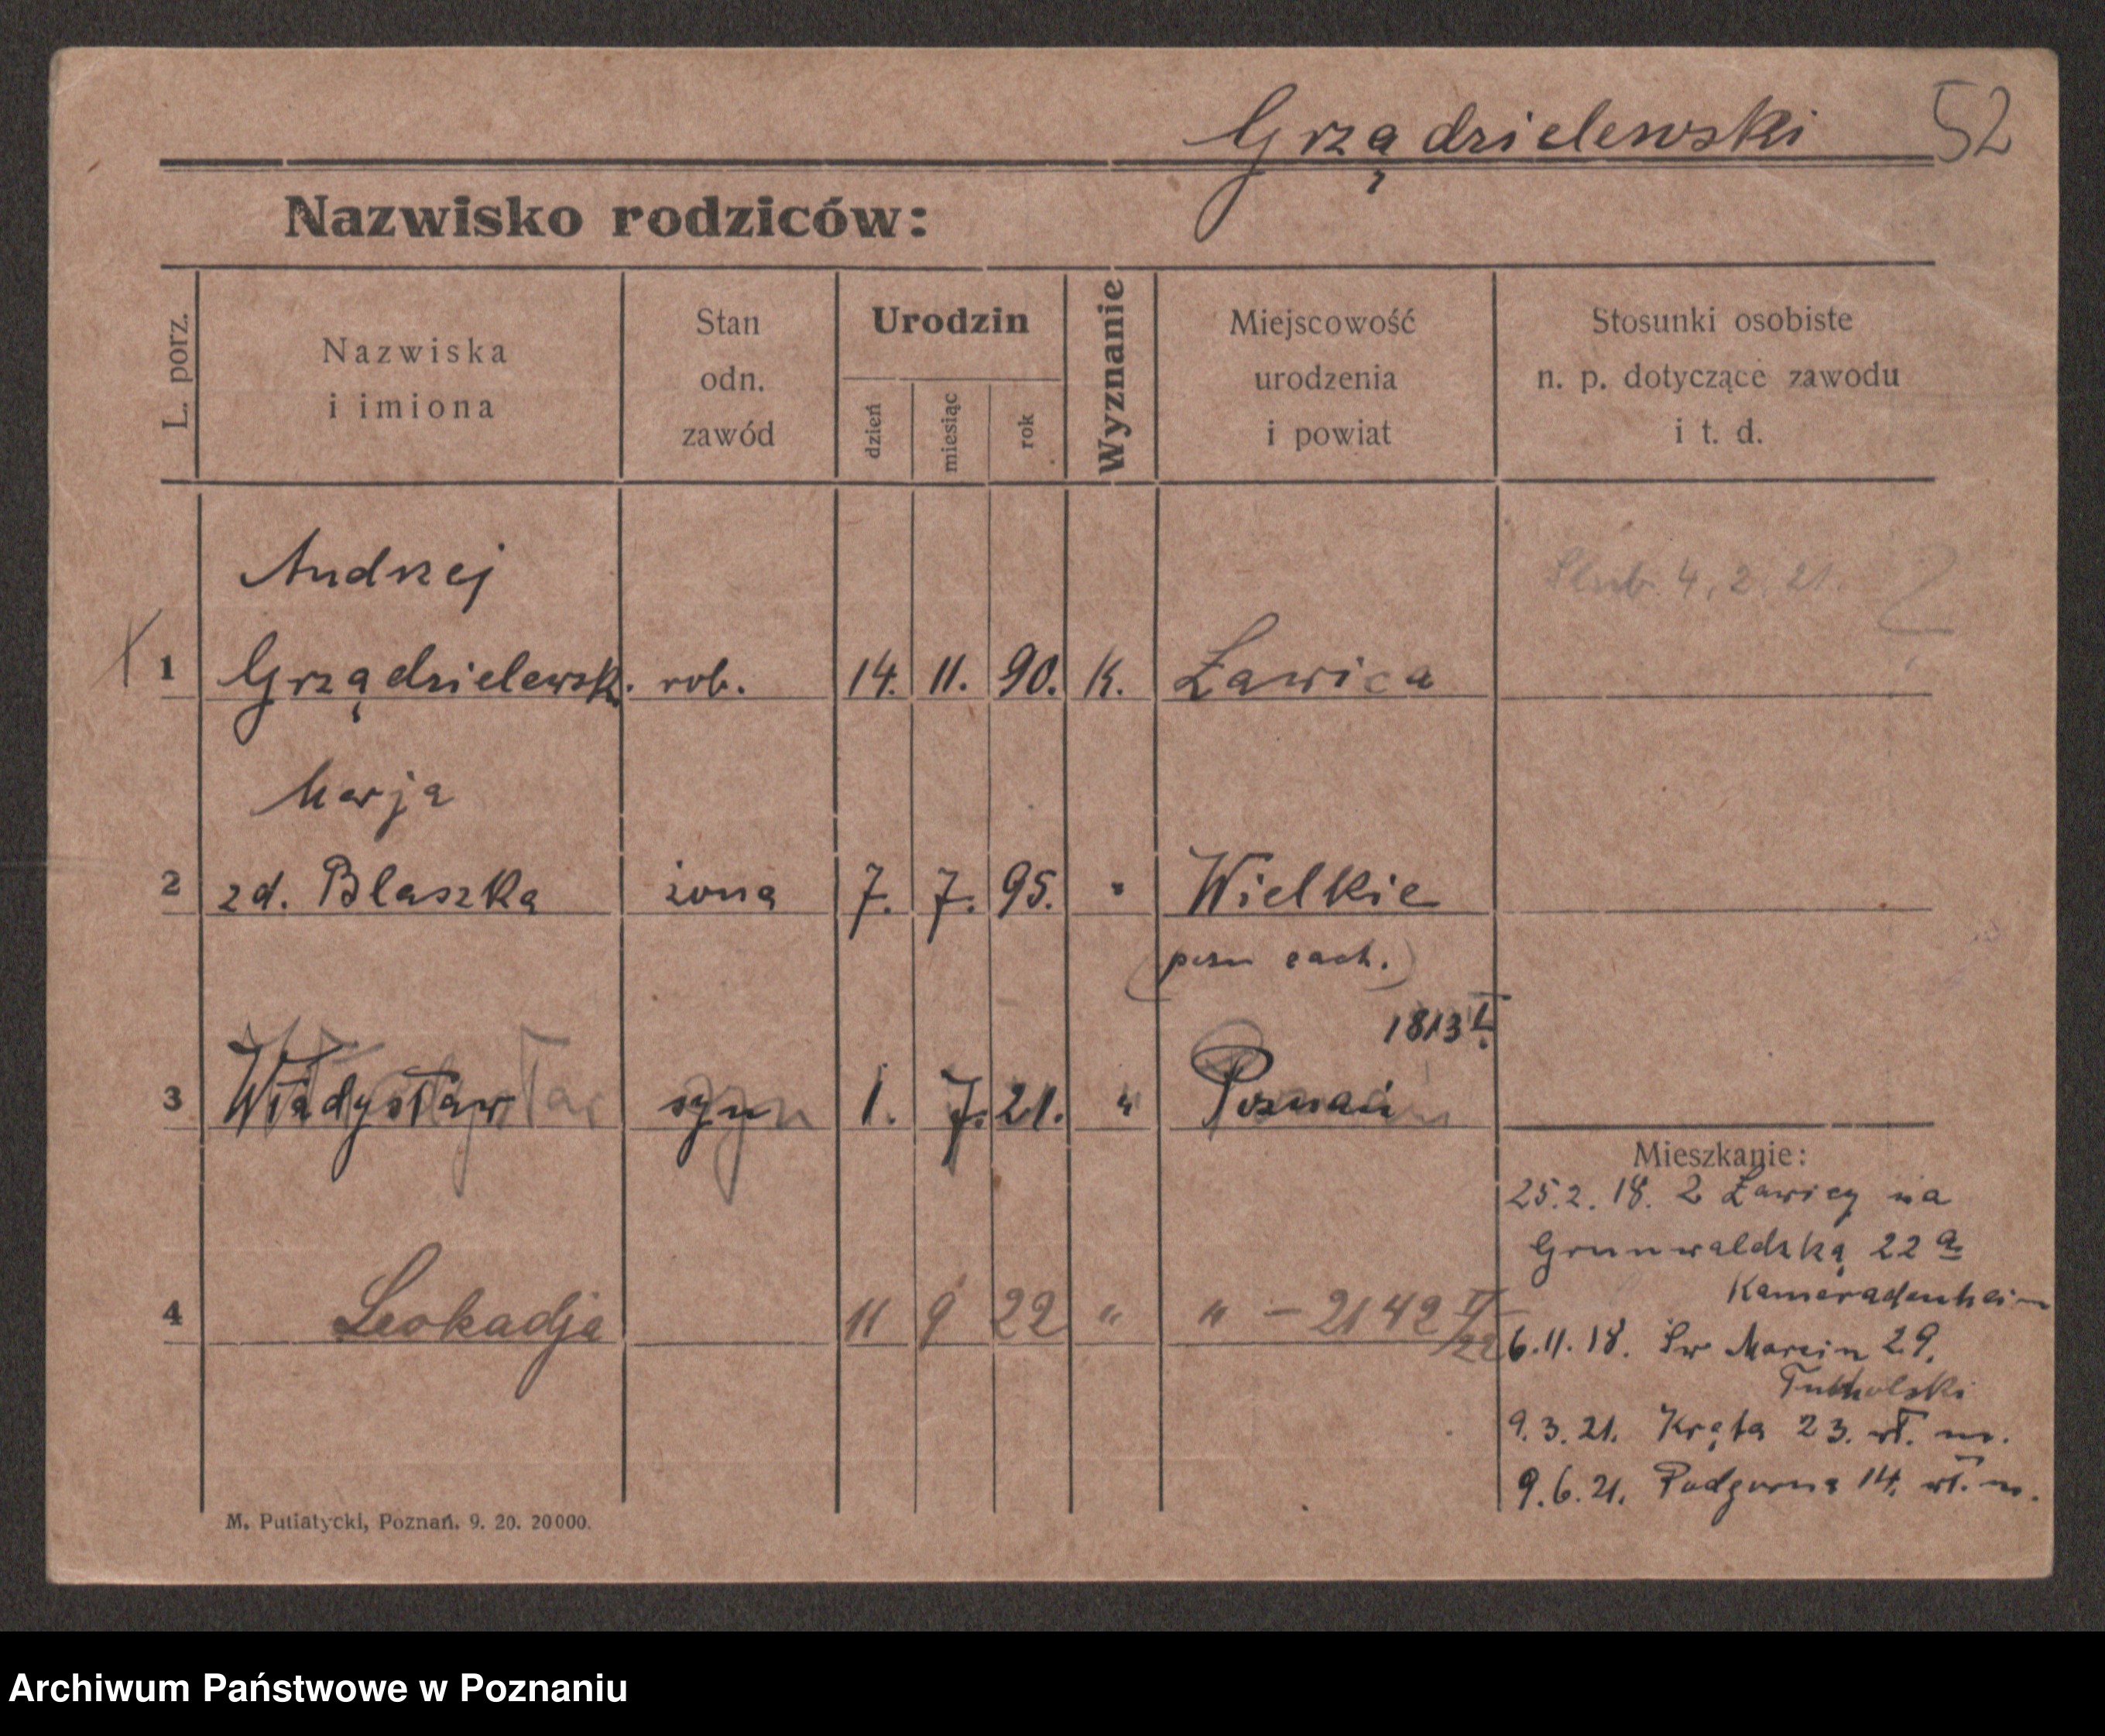 Grządzielewski 52
Nazwisko rodziców:
L. porz.
Nazwiska
i imiona
Stan
odn.
zawód
Urodzin
dzień
miesiąc
rok
Wyznanie
Miejscowość
urodzenia
i powiat
Stosunki osobiste
n. p. dotyczące zawodu
i t. d.
Andrzej
Ślub 4. 2. 21.
1 Grządzielewsk. rob. 14. 11. 90. K. Ławica
Marja
2 zd. Blaszka żona 7. 7. 95. " Wielkie
(pozn zach.)
1813 I.
3 Władysław syn 1. 7. 21. " Poznań
4 Leokadja 11 9 22 " " – 2142 II/22
Mieszkanie:
25.2.18. z Ławicy na
Grunwaldzką 22a
Kameradenheim
6.11.18. Św Marcin 29.
Tucholski
9.3.21. Kręta 23. wł. m.
9.6.21. Podgórna 14. wł. m.
M. Putiatycki, Poznań. 9. 20. 20000.
Archiwum Państwowe w Poznaniu